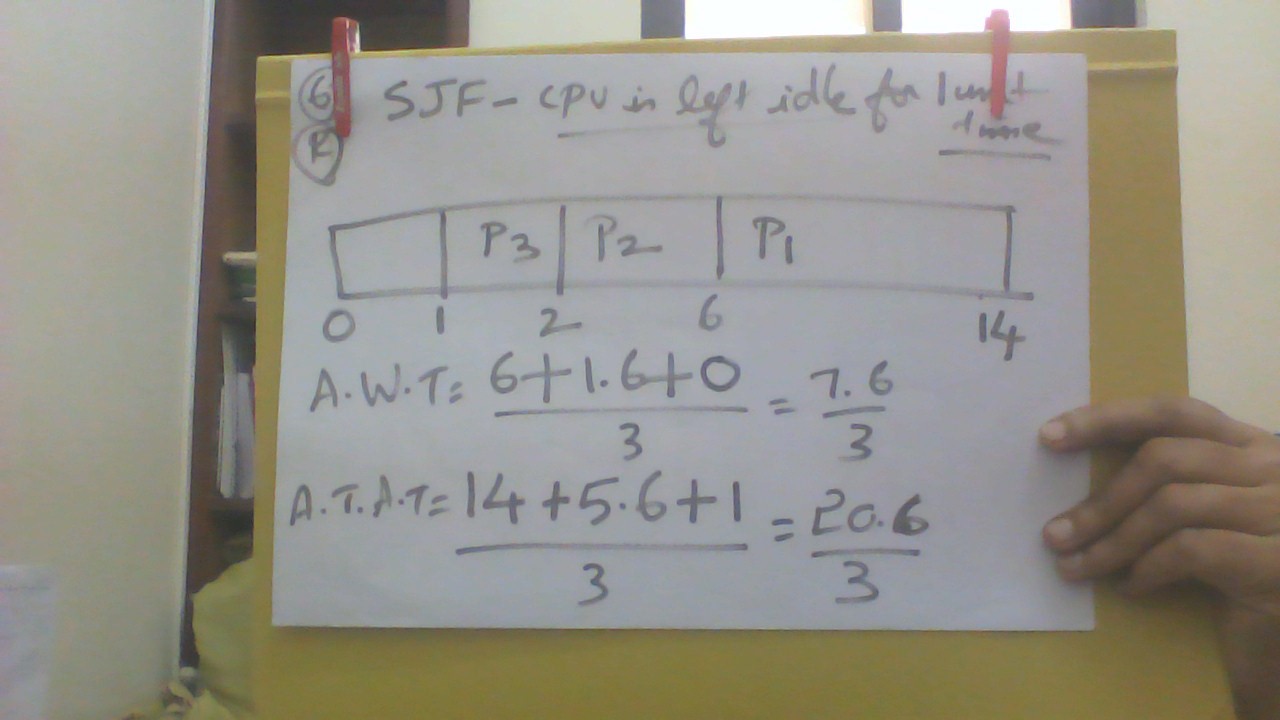 6 SJF - CPU is left idle for 1 unit
R time
P3 P2 P1
0 1 2 6 14
A.W.T = 6+1.6+0 / 3 = 7.6 / 3
A.T.A.T = 14+5.6+1 / 3 = 20.6 / 3